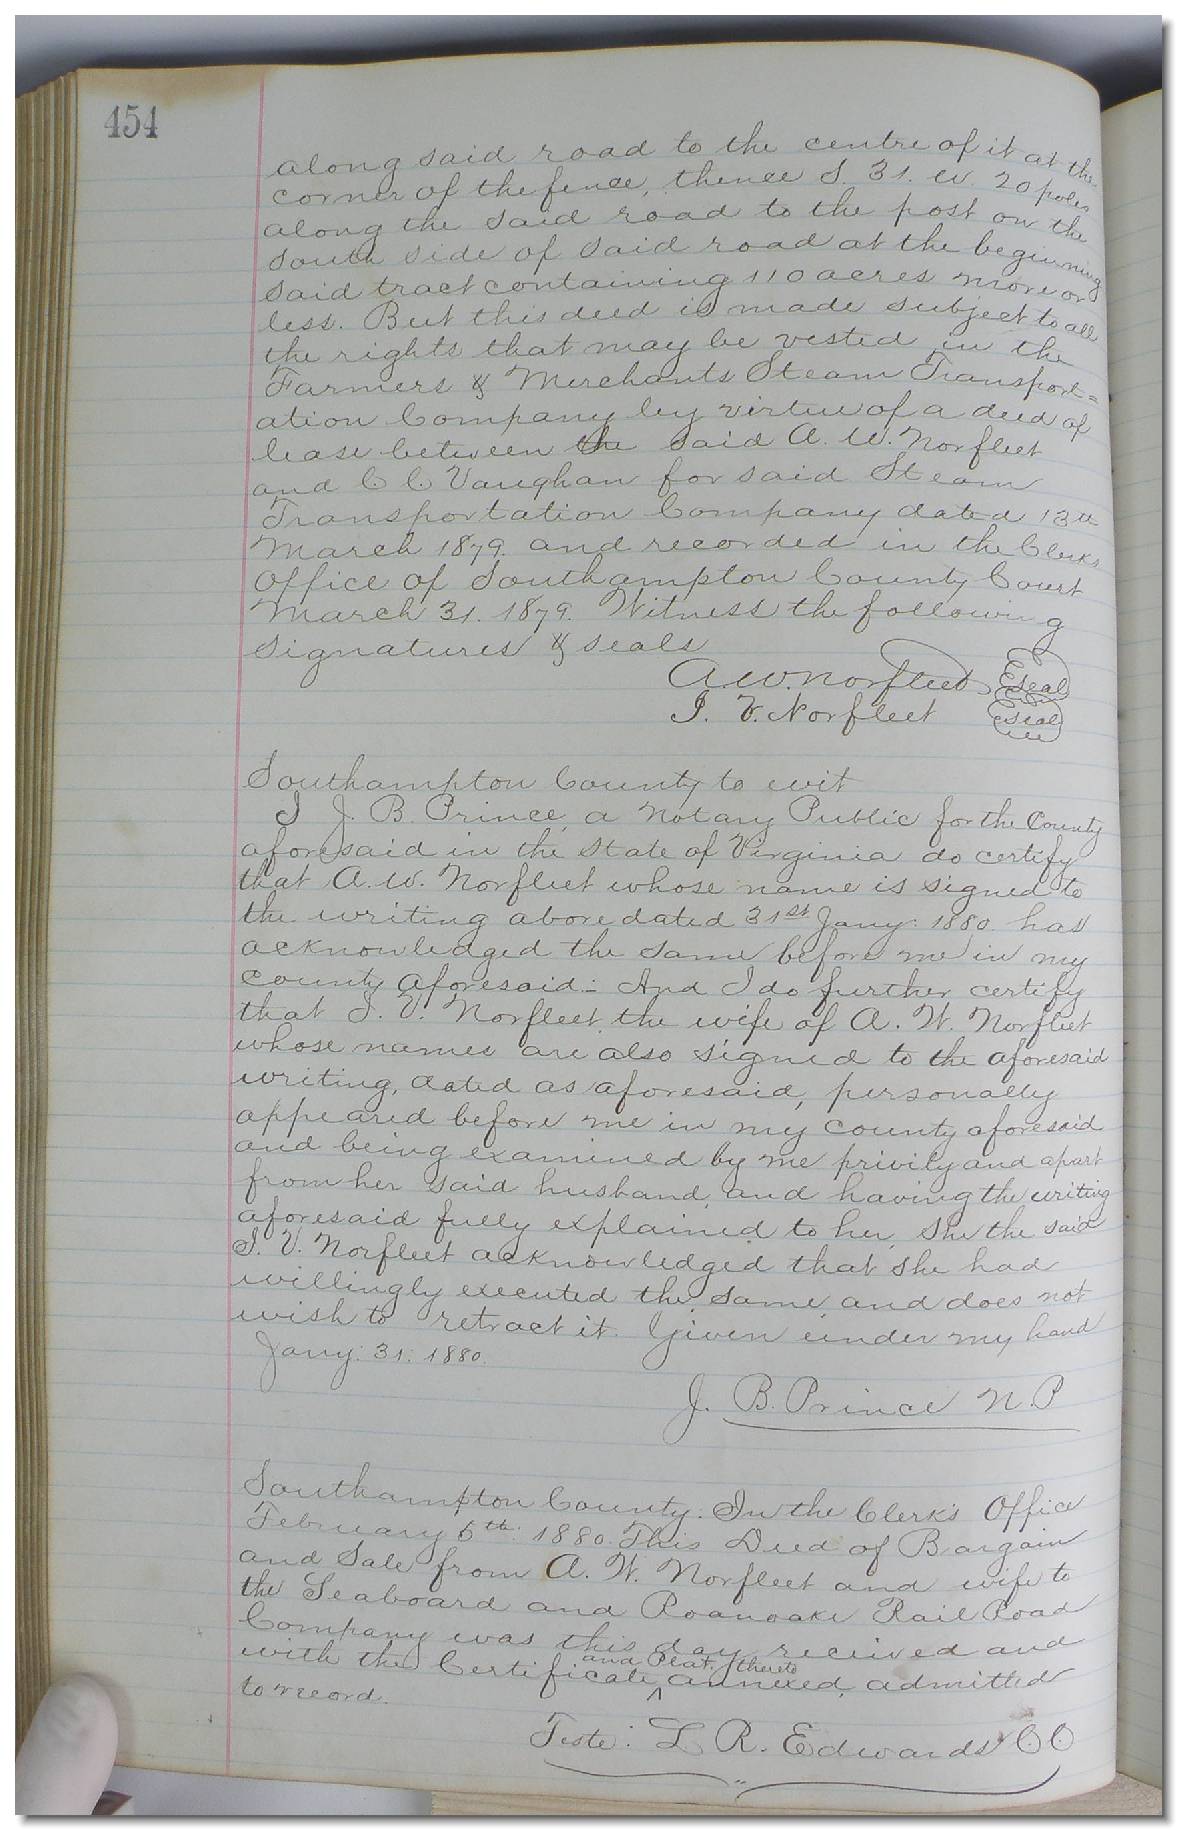 454
along said road to the centre of it at the
corner of the fence, thence S. 31. W. 20 poles
along the said road to the post on the
South side of said road at the beginning
said tract containing 110 acres more or
less. But this deed is made subject to all
the rights that may be vested in the
Farmers & Merchants Steam Transport=
ation Company by virtue of a deed of
lease between the said A. W. Norfleet
and C C Vaughan for said Steam
Transportation Company dated 13th
March 1879. and recorded in the Clerks
Office of Southampton County Court
March 31. 1879. Witness the following
signatures & seals
A. W. Norfleet Seal
I. V. Norfleet Seal
Southampton County to wit
I J. B. Prince, a Notary Public for the County
aforesaid in the State of Virginia do certify
that A. W. Norfleet whose name is signed to
the writing above dated 31st Jany: 1880. has
acknowledged the same before me in my
county aforesaid:- And I do further certify
that I. V. Norfleet the wife of A. W. Norfleet
whose names are also signed to the aforesaid
writing, dated as aforesaid, personally
appeared before me in my county aforesaid
and being examined by me privily and apart
from her said husband, and having the writing
aforesaid fully explained to her, she the said
I. V. Norfleet acknowledged that she had
willingly executed the same, and does not
wish to retract it. Given under my hand
Jany: 31: 1880.
J. B. Prince N. P
Southampton County: In the Clerk's Office
February 5th: 1880. This Deed of Bargain
and Sale from A. W. Norfleet and wife to
the Seaboard and Roanoake Rail Road
Company was this day received and
with the Certificate and Plat thereto annexed, admitted
to record.
Teste: L R. Edwards C.C.